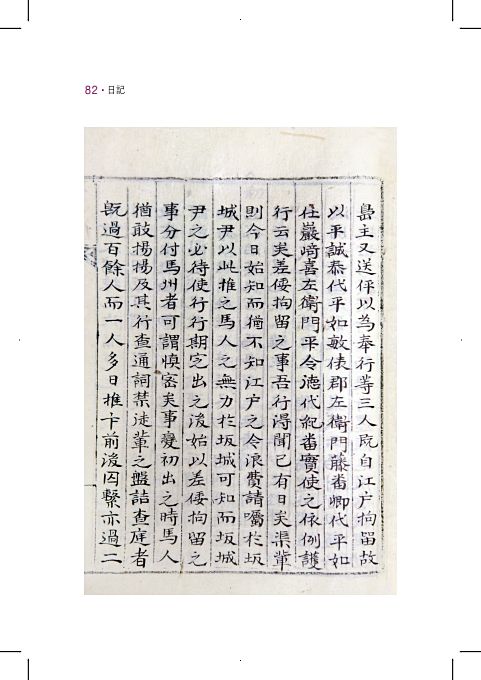 82・日記
島主又送伻以爲奉行等三人旣自江戶拘留故
以平誠泰代平如敏俵郡左衛門藤番卿代平如
任巖崎喜左衛門平令德代紀番實使之依例護
行云矣差倭拘留之事吾行得聞已有日矣渠輩
則今日始知而猶不知江户之令浪費請囑於坂
城尹以此推之馬人之無力於坂城可知而坂城
尹之必待使行行期定出之後始以差倭拘留之
事分付馬州者可謂愼密矣事變初出之時馬人
猶敢揚揚及其行查通詞禁徒輩之盤詰查庭者
旣過百餘人而一人多日推卞前後囚繫亦過二